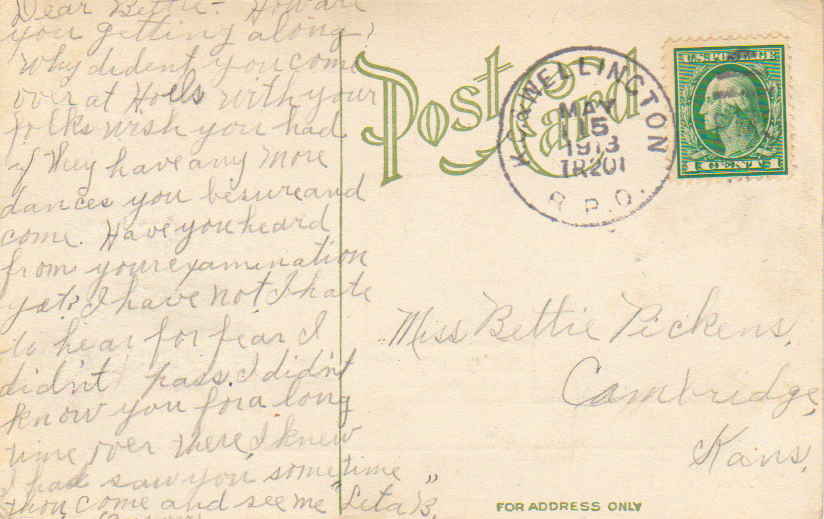 Dear Bettie - How are
you getting along?
Why dident you come
over at Hoels with your
folks wish you had
if they have any more
dances you be sure and
come. Have you heard
from your examination
yet? I have not I hate
to hear for fear I
didn't pass. I didn't
know you for a long
time over there, I knew
I had saw you sometime
come and see me "Leta B."
Post Card
K.C. & WELLINGTON
MAY
15
1913
TR201
R.P.O.
U.S. POSTAGE
1 CENT 1
Miss Bettie Pickens,
Cambridge,
Kans,
FOR ADDRESS ONLY